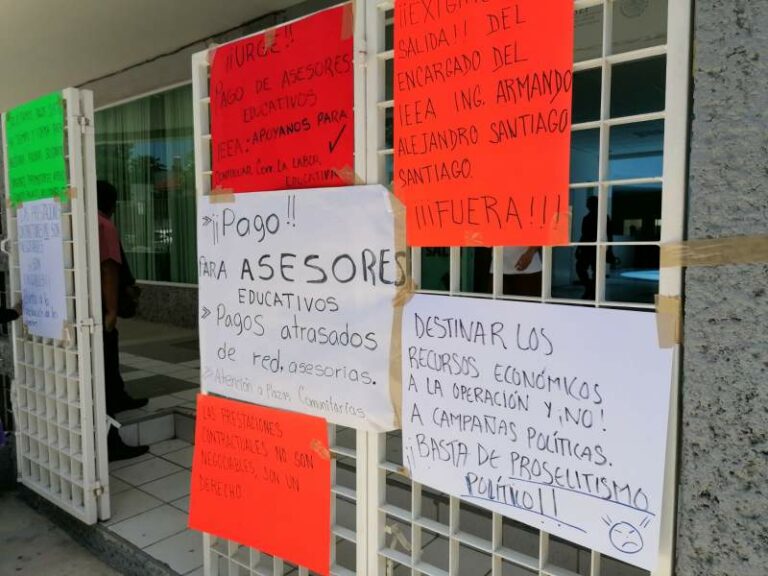 ¡¡URGE!!
PAGO DE ASESORES
EDUCATIVOS
IEEA: APOYANOS PARA
CONTINUAR CON LA LABOR
EDUCATIVA
¡¡EXIGIMOS
SALIDA!! DEL
ENCARGADO DEL
IEEA ING. ARMANDO
ALEJANDRO SANTIAGO
SANTIAGO.
¡¡¡FUERA!!!
» ¡¡Pago!!
PARA ASESORES
EDUCATIVOS
» Pagos atrasados
de red, asesorias.
» Atención a Plazas Comunitarias
DESTINAR LOS
RECURSOS ECONÓMICOS
A LA OPERACIÓN Y ¡NO!
A CAMPAÑAS POLÍTICAS.
¡¡BASTA DE PROSELITISMO
POLÍTICO!!
LAS PRESTACIONES
CONTRACTUALES NO SON
NEGOCIABLES, SON UN
DERECHO